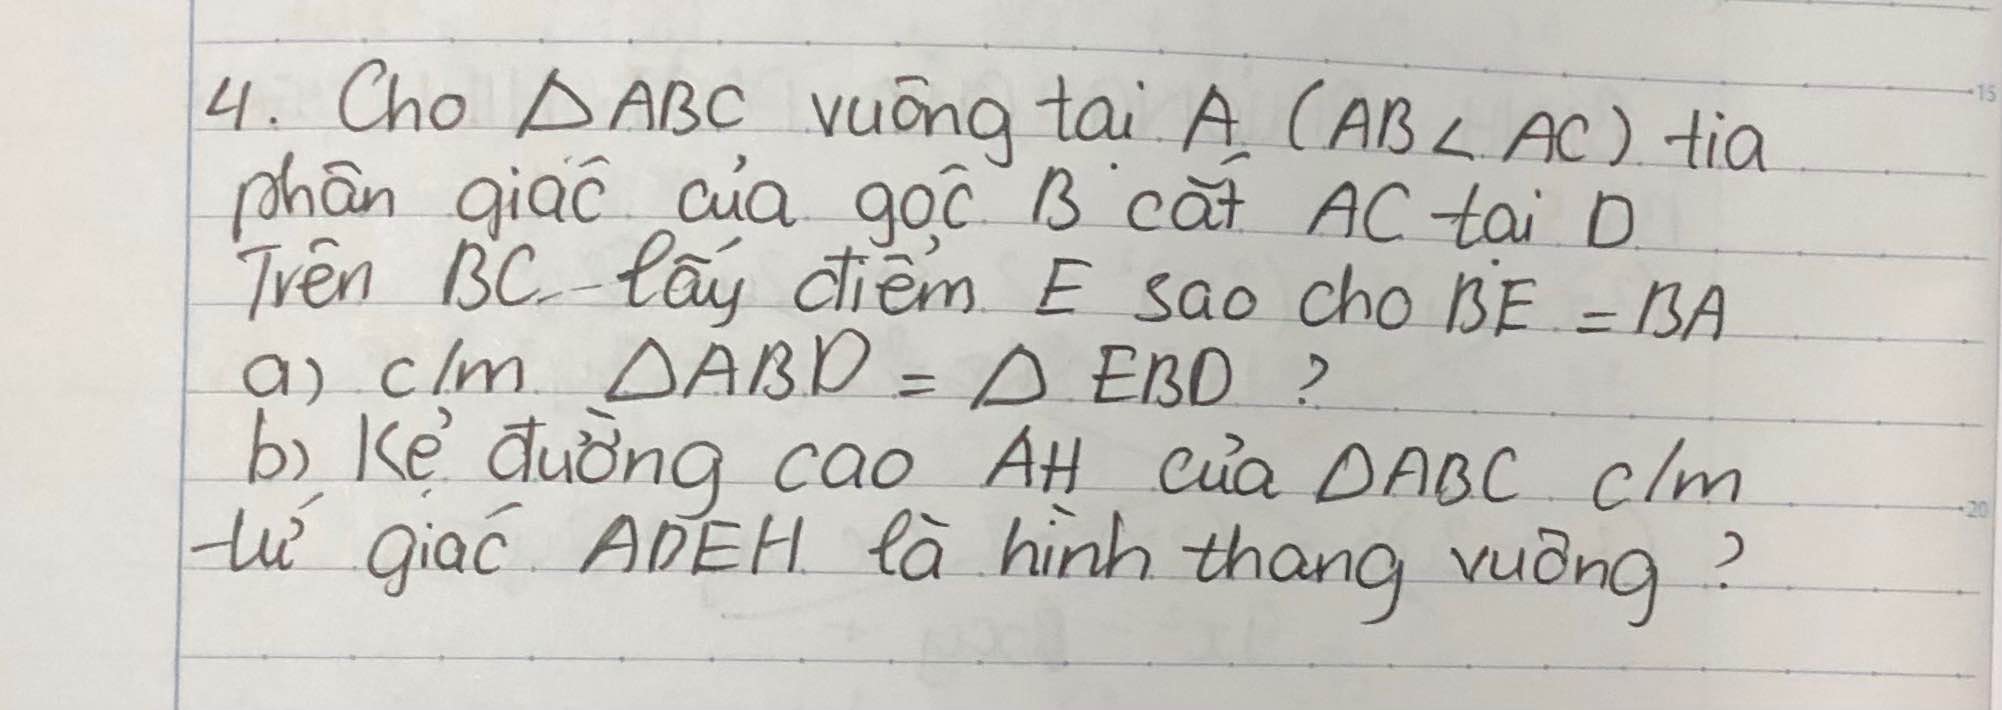 4. Cho ΔABC vuông tại A (AB < AC) tia
phân giác của góc B cắt AC tại D
Trên BC lấy điểm E sao cho BE = BA
a) c/m ΔABD = Δ EBD ?
b) Kẻ đường cao AH của ΔABC c/m
tứ giác ADEH là hình thang vuông ?
15
20